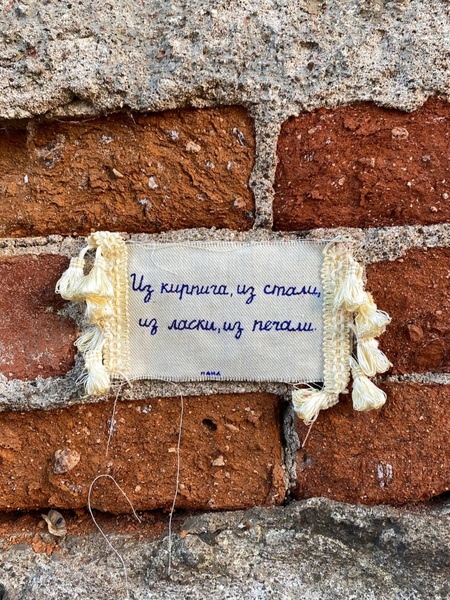 Из кирпича, из стали,
из ласки, из печали.
МАНА